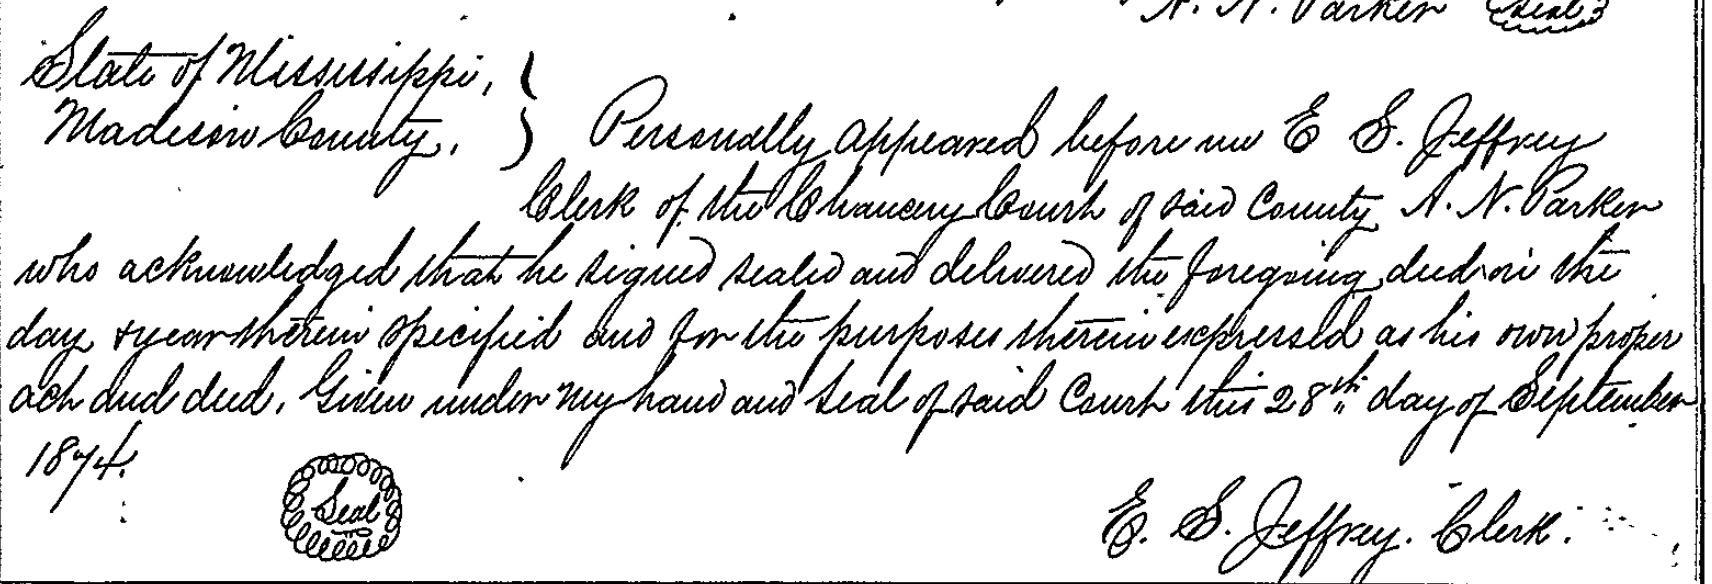 A. N. Parker Seal
State of Mississippi,
Madison County.
Personally appeared before me E S. Jeffrey
Clerk of the Chancery Court of said County A. N. Parker
who acknowledged that he signed sealed and delivered the foregoing deed on the
day & year therein specified and for the purposes therein expressed as his own proper
act and deed. Given under my hand and seal of said Court this 28th day of September
1874.
Seal
E. S. Jeffrey. Clerk.